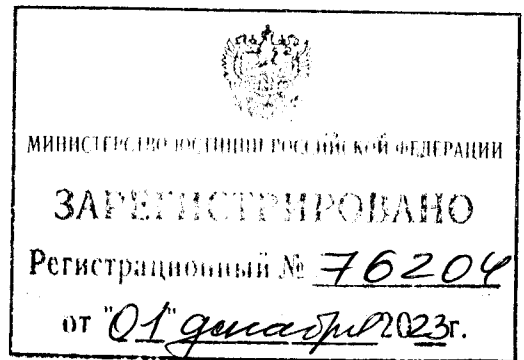 МИНИСТЕРСТВО ЮСТИЦИИ РОССИЙСКОЙ ФЕДЕРАЦИИ
ЗАРЕГИСТРИРОВАНО
Регистрационный № 76204
от "01" декабря 2023г.